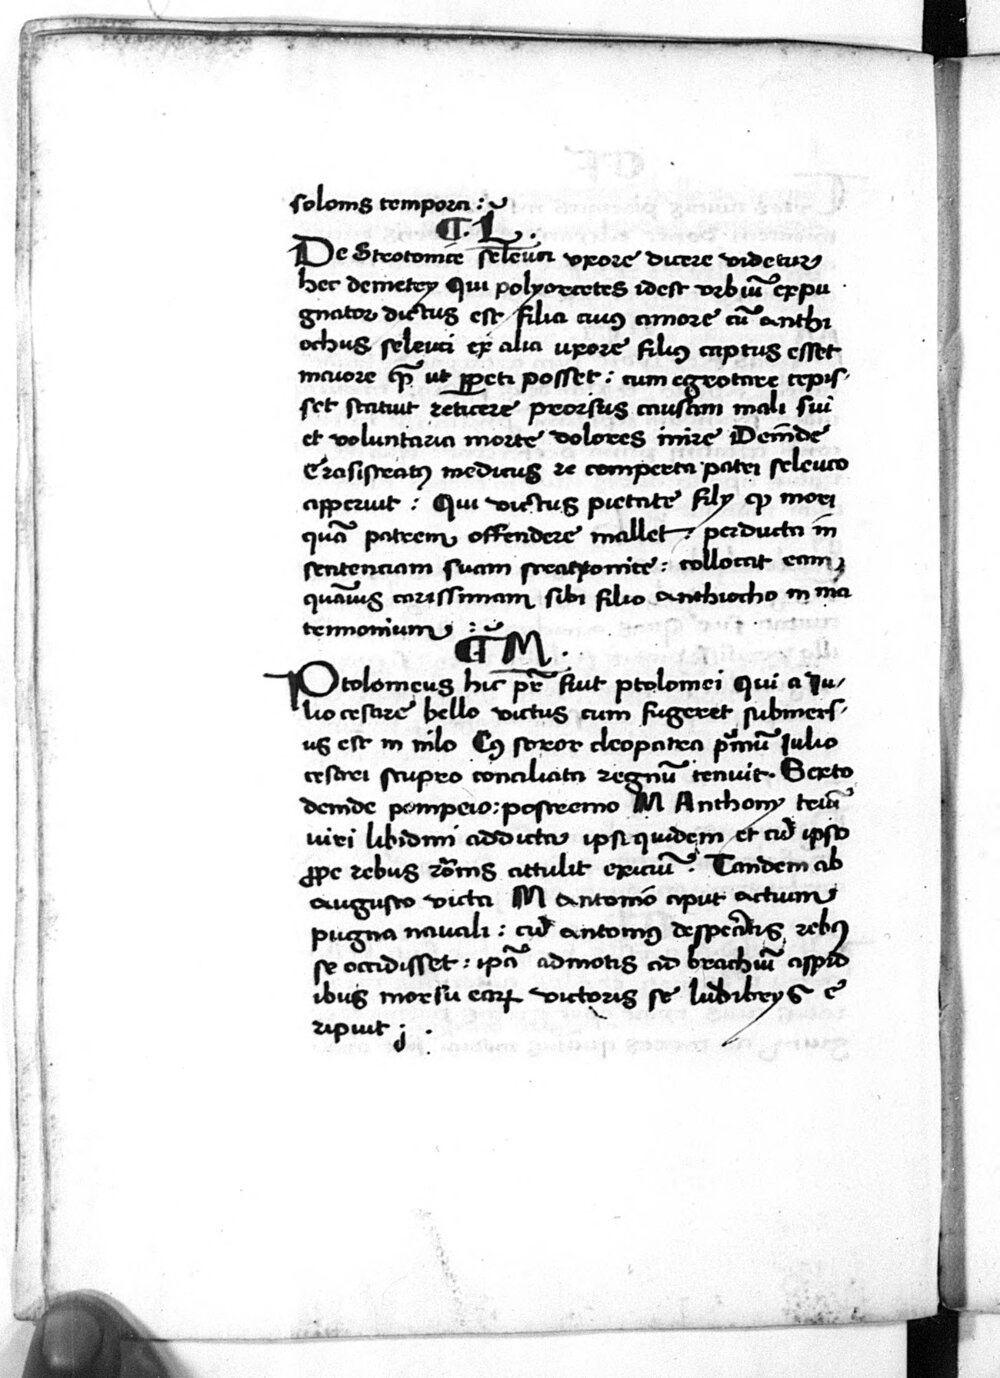 solonis tempora :
¶. L̃ .
De Strotonice seleuci vxore dicere videtur
hec demetry Qui polyorcetes idest vrbiũ expu
gnator dictus est filia cuiꝰ amore cũ anthi
ochus seleuci ex alia uxore filiꝰ captus esset
maiore qͫ ut ꝑpeti posset : cum egrotare cepis,
set statuit reticere prorsus causam mali sui
et voluntaria morte dolores inire Deinde
Erasistratꝰ medicus re comperta patri seleuco
apperiuit : Qui victus pietate fily ꝙ mori
quã patrem offendere mallet : perducta in
sentenciam suam streatronice : collocat eam
quãuis carissimam sibi filio anthiocho in ma
termonium :
¶ M̃ .
Ptolomeus hic pr̃ fuit ptolomei Qui a Iu,
lio cesare bello victus cum fugeret submers,
us est in nilo Cꝰ soror cleopatra pͥmũ Iulio
cesarei stupro conciliata regnũ tenuit. Sexto
deinde pompeio : postremo M Anthony triũ
viri libidini addicta ipsi quidem et cũ ipso
ꝓpe rebus roͫnis attulit exiciũ. Tandem ab
augusto victa M antonio aput actium
pugna nauali : cũ antoniꝰ desperatis rebꝰ
se occidisset : ipã admotis ad brachiũ aspid
ibus morsu eaꝝ victoris se ludibrys e
ripuit ; .